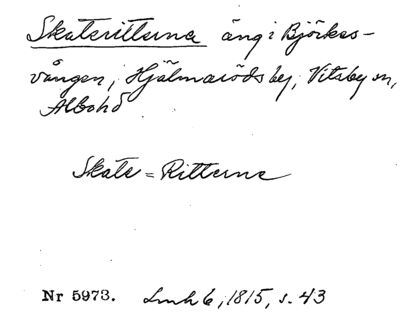 Skateritterna äng i Björkes-
vången, Hjälmaröds by, Vitaby sn,
Albo hd
Skate = Ritterne
Nr 5973. Lmh 6, 1815, s. 43